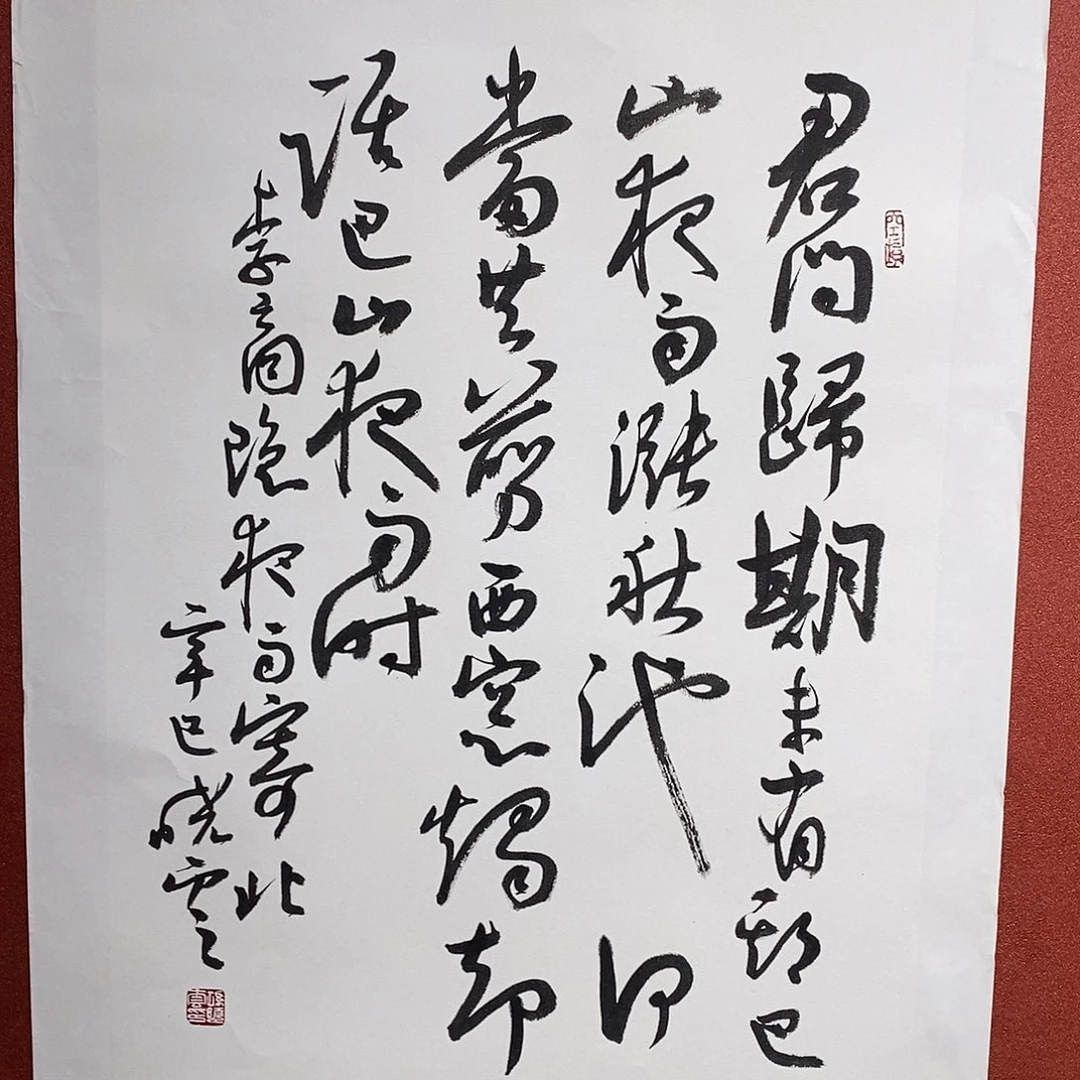 君問歸期未有期巴
山夜雨漲秋池何
當共剪西窓燭却
話巴山夜雨时
李商隐夜雨寄北
辛巳晓雲